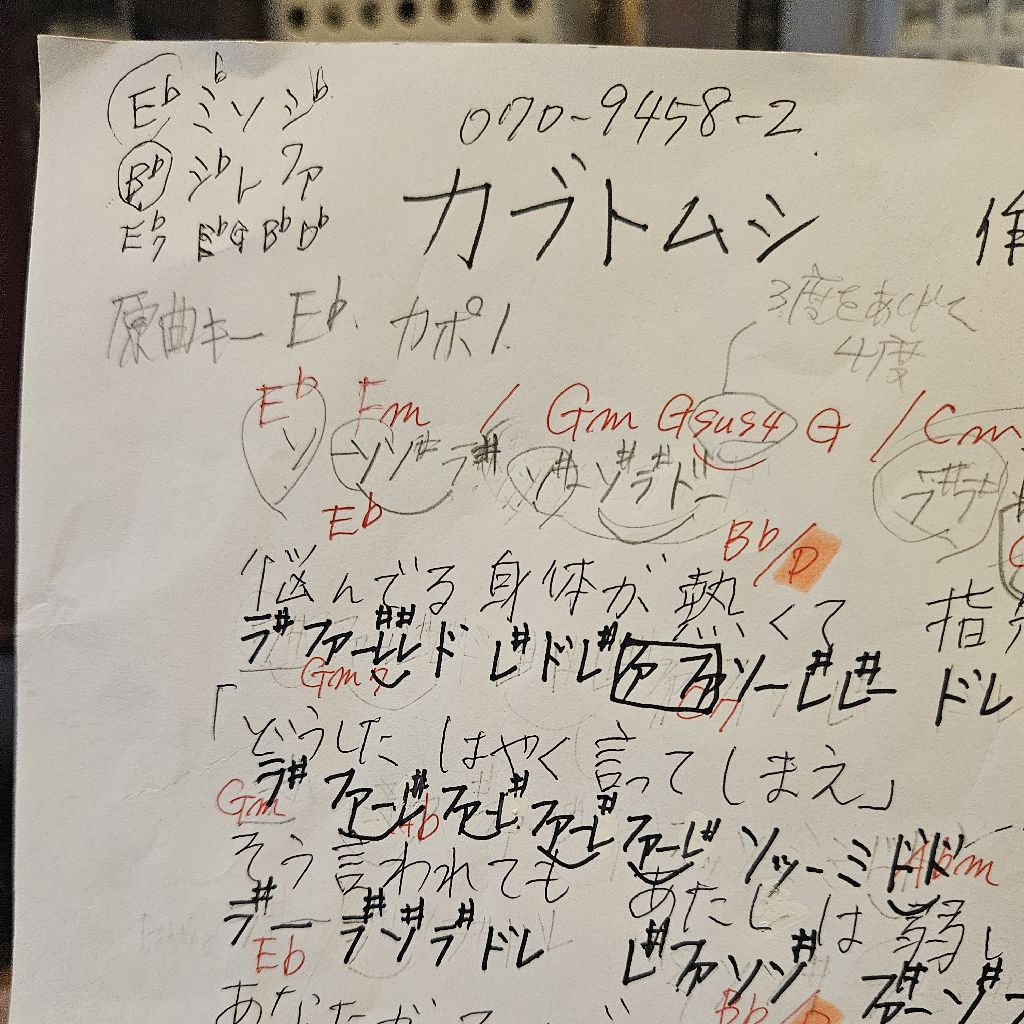 E♭ ミ♭ ソ シ♭
070-9458-2
B♭ シ♭ レ ファ
カブトムシ 作
E♭7 E♭ G B♭ D♭
原曲キー E♭ カポ1
3度をあげて
4度
E♭ Fm / Gm Gsus4 G / Cm
ソ ソソ# ラ# ソ# ソ#ラ#ドー ラ#ラ#
E♭ B♭/D
悩んでる 身体が 熱くて 指先
ラ# ファーレ#レ#ド レ#ドレ# ファ ファソーレ#レ#ー ドレ
Gm7
「どうした はやく 言ってしまえ」
ラ# ファーレ# ファーレ# ファーレ# ファーレ# ソッーミドド
Gm Ab Abm
そう言われても あたしは弱い
ラ#ー ラ#ソ#ラ#ドレ レ#ファソソ#
Eb Bb/D
あなたが